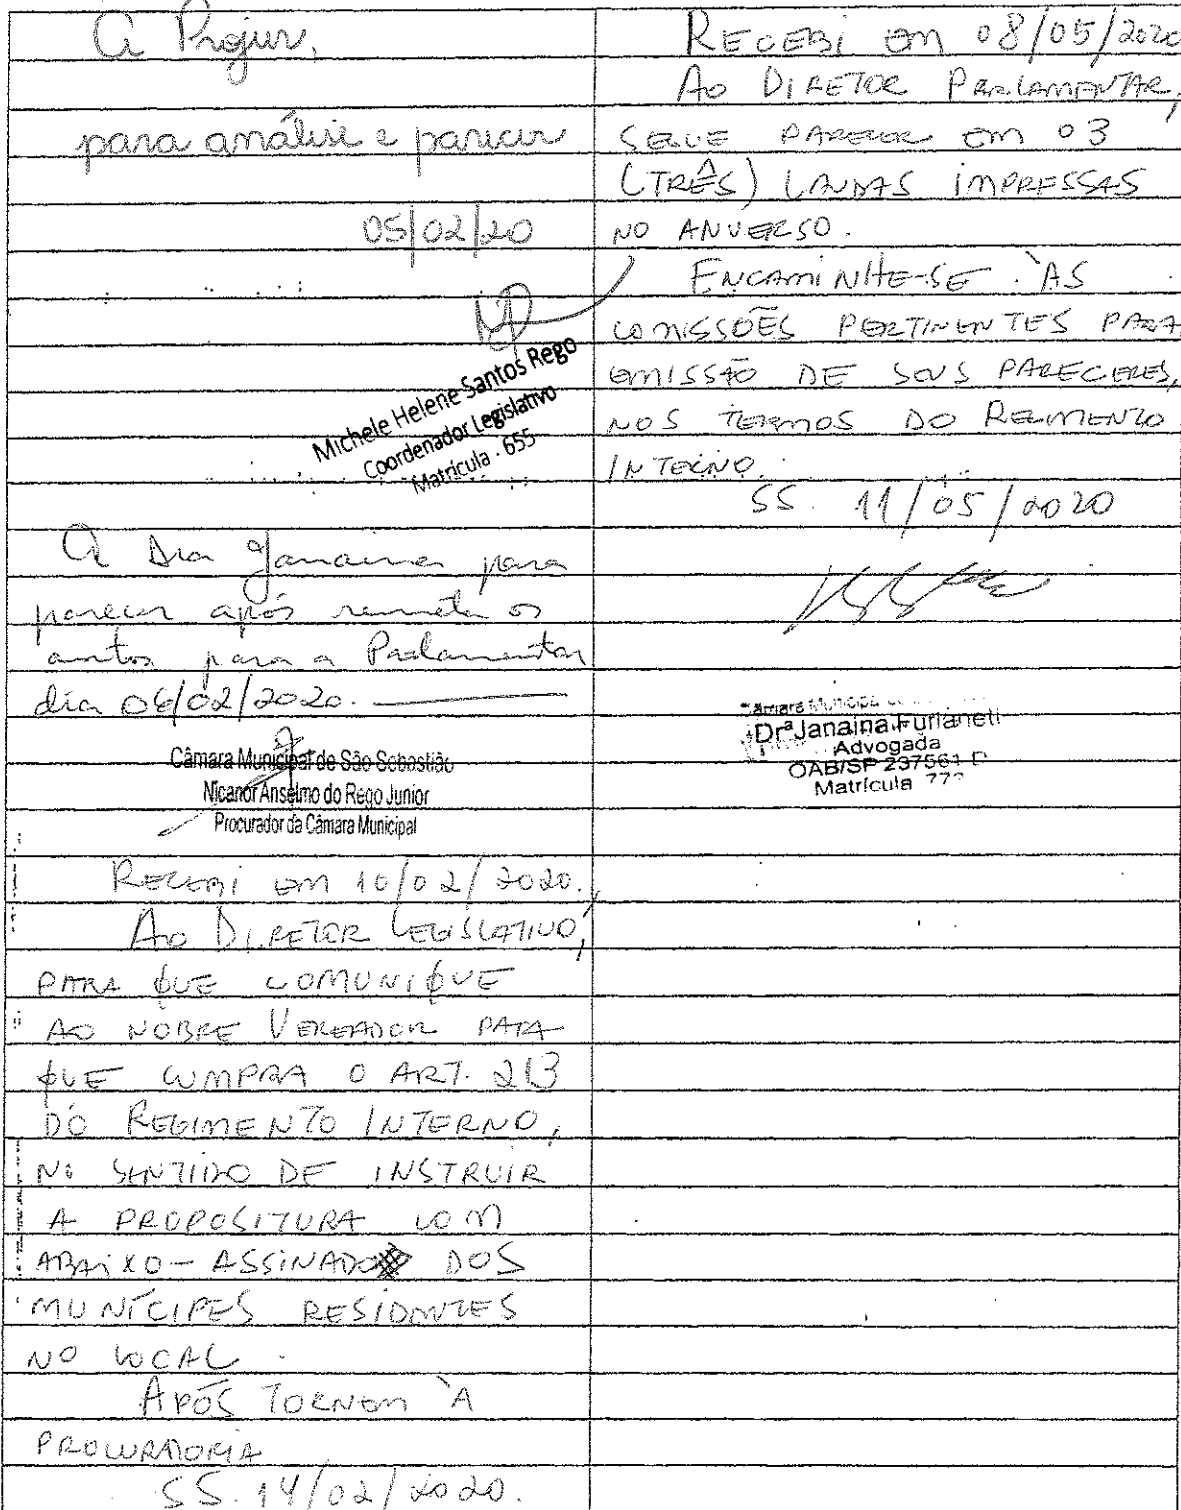 À Projur,
para análise e parecer
05/02/20
Michele Helene Santos Rego
Coordenador Legislativo
Matrícula - 655
À Dra Janaina para
parecer após remeta os
autos para a Parlamentar
dia 06/02/2020.
Câmara Municipal de São Sebastião
Nicanor Anselmo do Rego Junior
Procurador da Câmara Municipal
RECEBI EM 10/02/2020.
AO DIRETOR LEGISLATIVO,
PARA QUE COMUNIQUE
AO NOBRE VEREADOR PARA
QUE CUMPRA O ART. 213
DO REGIMENTO INTERNO,
NO SENTIDO DE INSTRUIR
A PROPOSITURA COM
ABAIXO-ASSINADO DOS
MUNÍCIPES RESIDENTES
NO LOCAL.
APÓS TORNEM À
PROCURADORIA
SS. 14/02/2020.
RECEBI EM 08/05/2020
AO DIRETOR PARLAMENTAR,
SEGUE PARECER EM 03
(TRÊS) LAUDAS IMPRESSAS
NO ANVERSO.
ENCAMINHE-SE ÀS
COMISSÕES PERTINENTES PARA
EMISSÃO DE SEUS PARECERES,
NOS TERMOS DO REGIMENTO
INTERNO.
SS. 11/05/2020
Câmara Municipal
Drª Janaina Furlaneti
Advogada
OAB/SP 237561
Matrícula 77